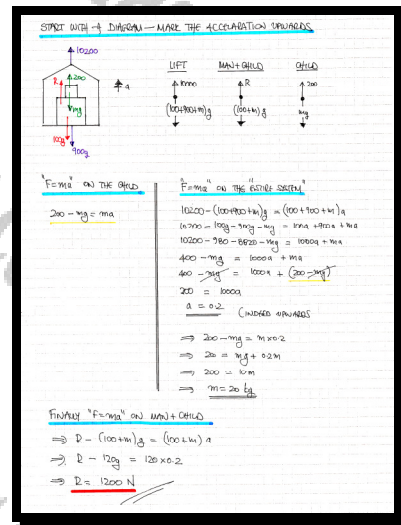 START WITH A DIAGRAM — MARK THE ACCELERATION UPWARDS
10200
R
200
mg
100g
900g
a
LIFT
MAN+CHILD
CHILD
10200
R
200
(100+900+m)g
(100+m)g
mg
"F=ma" ON THE CHILD
200 - mg = ma
"F=ma" ON THE "ENTIRE SYSTEM"
10200 - (100+900+m)g = (100+900+m)a
10200 - 100g - 900g - mg = 100a + 900a + ma
10200 - 980 - 8820 - mg = 1000a + ma
400 - mg = 1000a + ma
400 - mg = 1000a + (200 - mg)
200 = 1000a
a = 0.2
(INDEED UPWARDS
⇒ 200 - mg = m×0.2
⇒ 200 = mg + 0.2m
⇒ 200 = 10m
⇒ m = 20 kg
FINALLY "F=ma" ON MAN + CHILD
⇒ R - (100+m)g = (100+m)a
⇒ R - 120g = 120×0.2
⇒ R = 1200 N